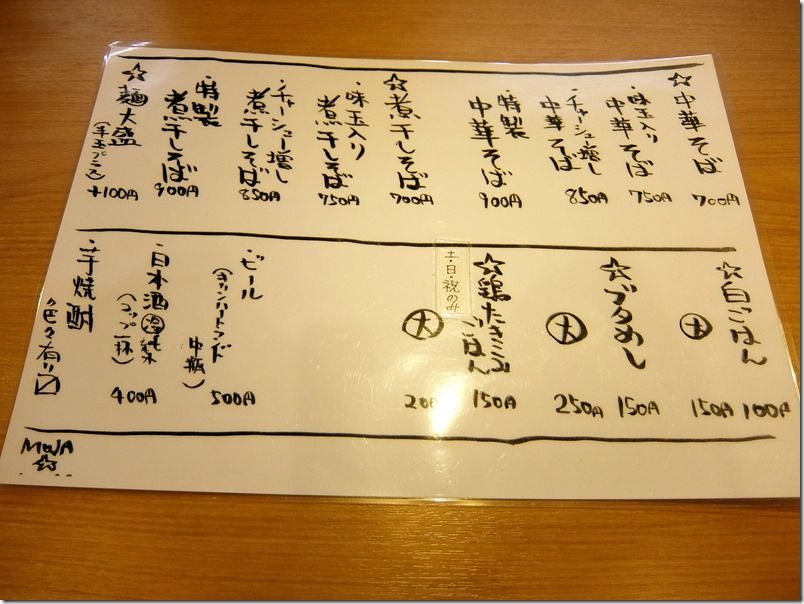 ☆中華そば 700円
・味玉入り中華そば 750円
・チャーシュー増し中華そば 850円
・特製中華そば 900円
☆煮干しそば 700円
・味玉入り煮干しそば 750円
・チャーシュー増し煮干しそば 850円
・特製煮干しそば 900円
☆麺大盛(半玉プラス) +100円
☆白ごはん 100円
大 150円
☆ブタめし 150円
大 250円
☆鶏たきこみごはん 150円
土・日・祝のみ
大 200
・ビール(キリンハートランド中瓶) 500円
・日本酒 純米(コップ一杯) 400円
・芋焼酎 色々有り〼